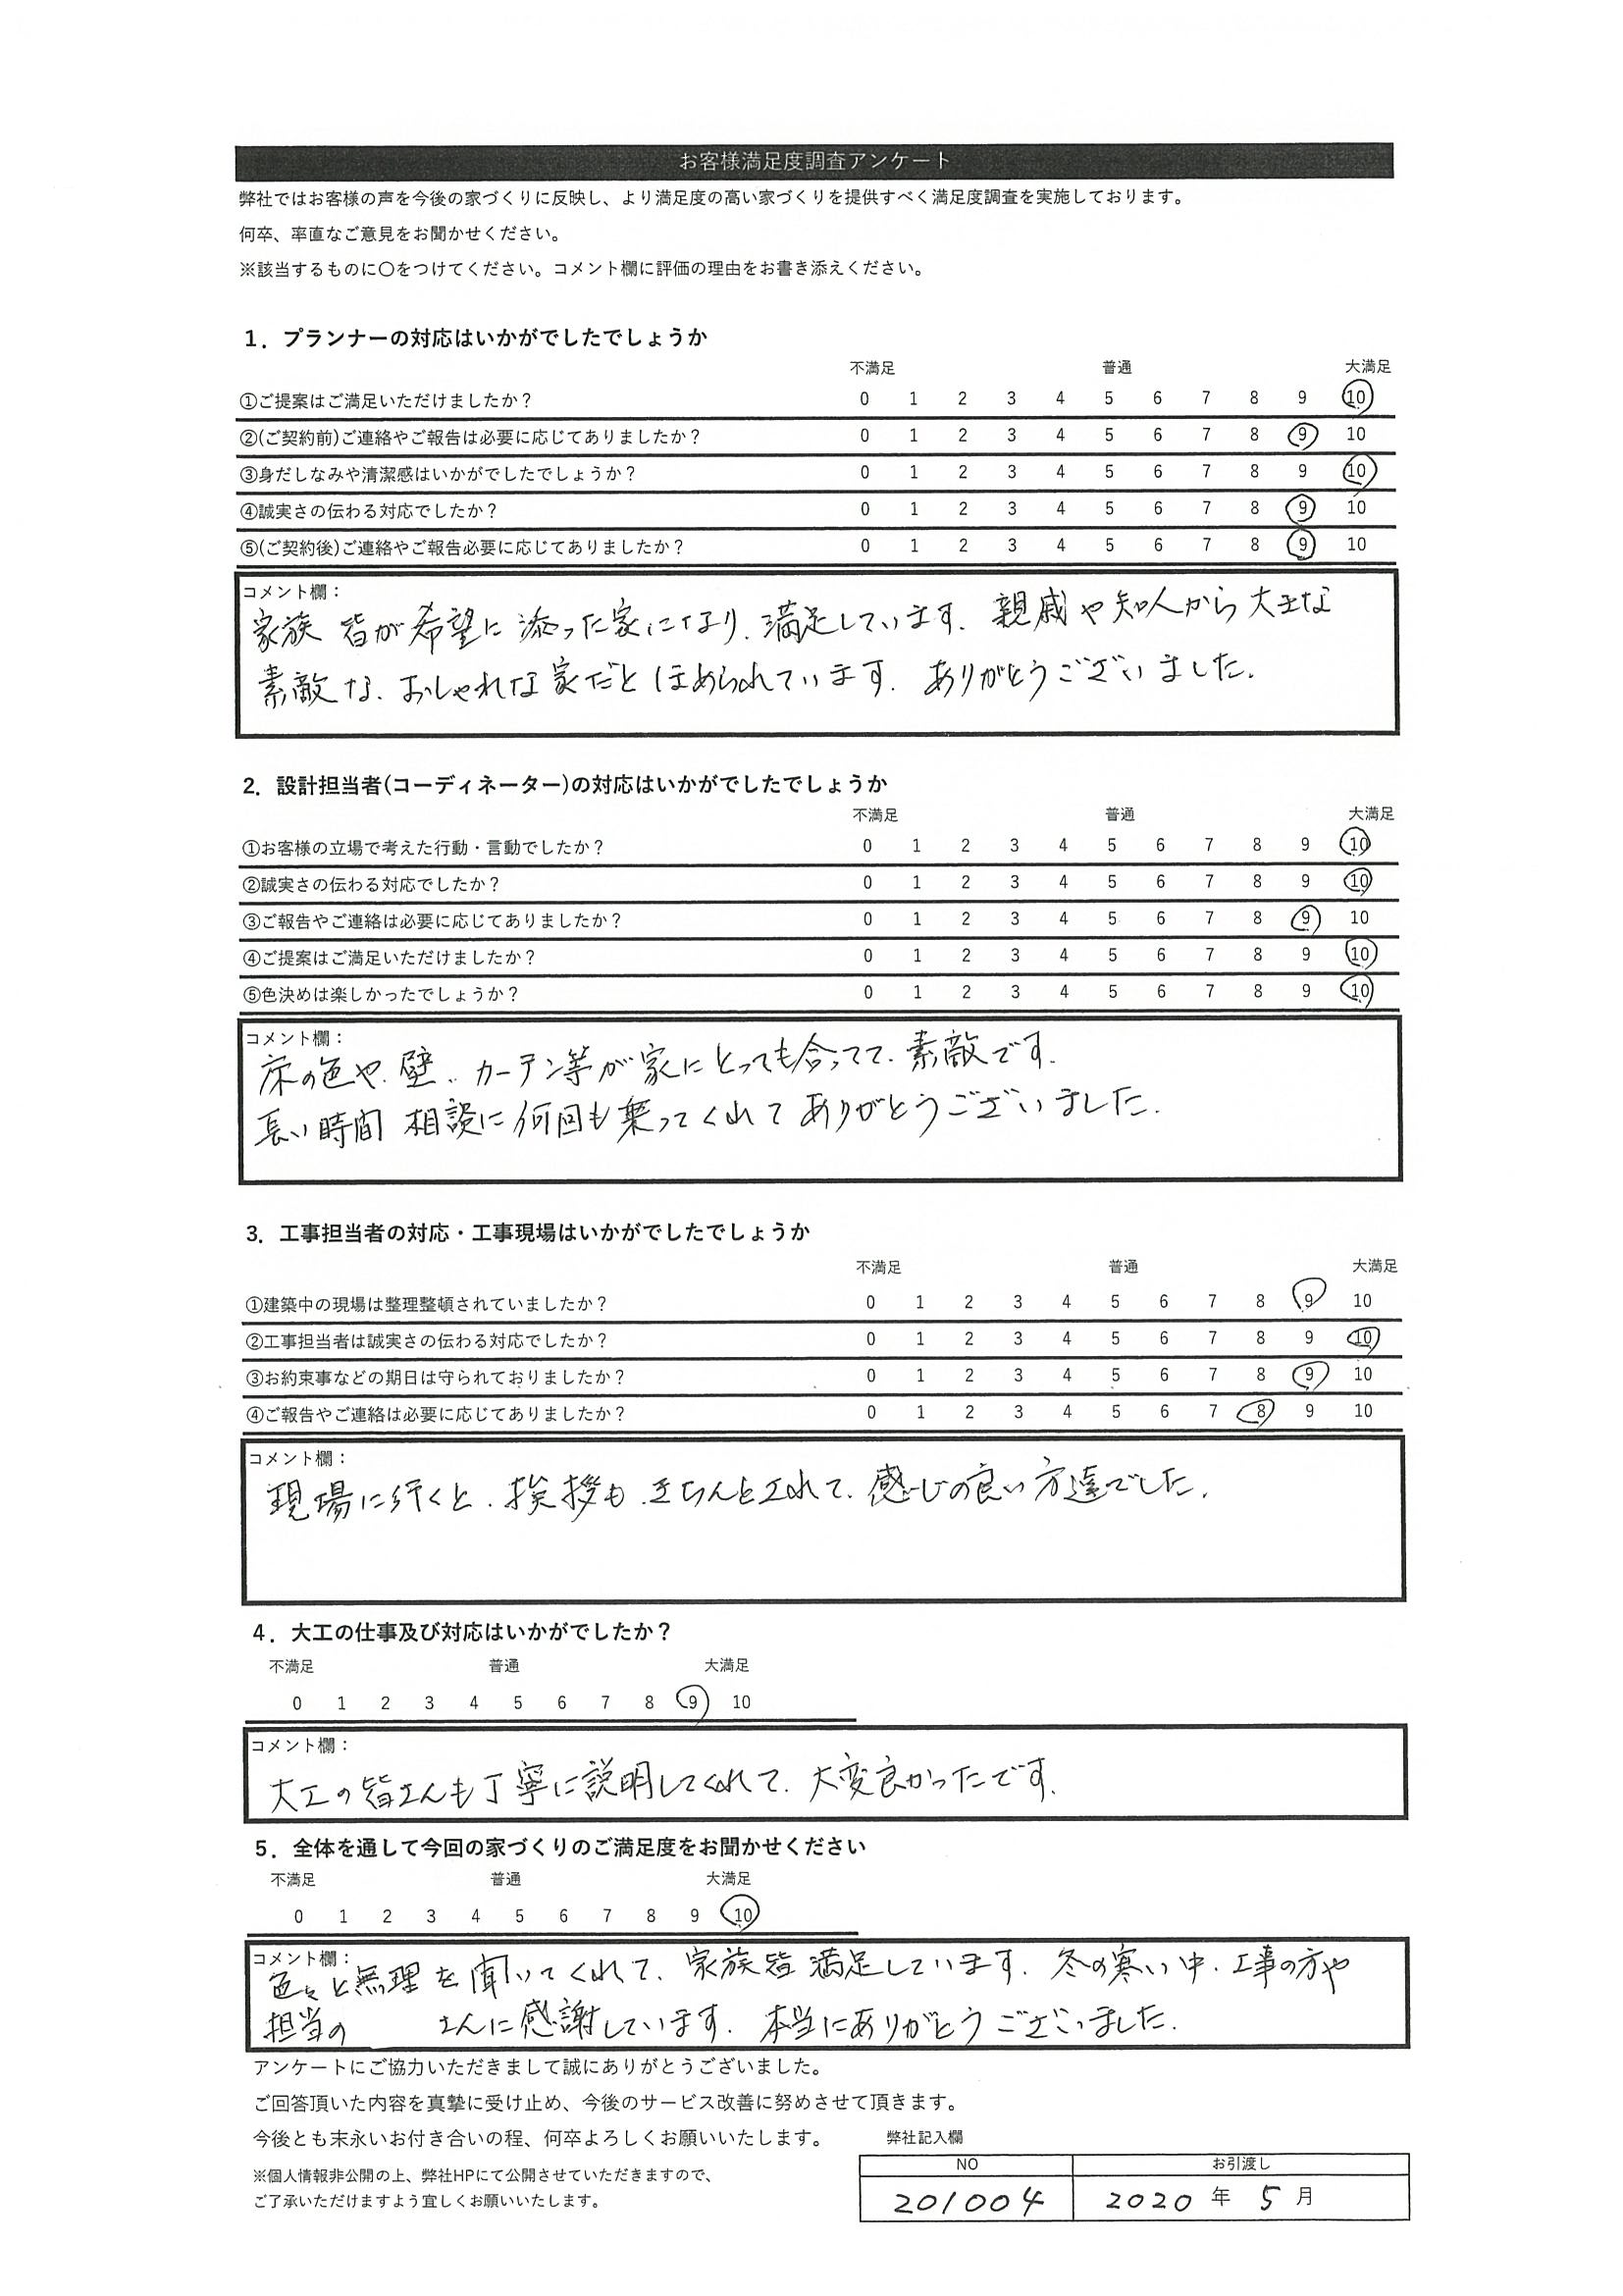 お客様満足度調査アンケート
弊社ではお客様の声を今後の家づくりに反映し、より満足度の高い家づくりを提供すべく満足度調査を実施しております。
何卒、率直なご意見をお聞かせください。
※該当するものに〇をつけてください。コメント欄に評価の理由をお書き添えください。
1．プランナーの対応はいかがでしたでしょうか
不満足 普通 大満足
①ご提案はご満足いただけましたか？ 0 1 2 3 4 5 6 7 8 9 10
②(ご契約前)ご連絡やご報告は必要に応じてありましたか？ 0 1 2 3 4 5 6 7 8 9 10
③身だしなみや清潔感はいかがでしたでしょうか？ 0 1 2 3 4 5 6 7 8 9 10
④誠実さの伝わる対応でしたか？ 0 1 2 3 4 5 6 7 8 9 10
⑤(ご契約後)ご連絡やご報告必要に応じてありましたか？ 0 1 2 3 4 5 6 7 8 9 10
コメント欄：
家族 皆が希望に添った家になり、満足しています。親戚や知人から大きな
素敵な、おしゃれな家だとほめられています。ありがとうございました。
2．設計担当者(コーディネーター)の対応はいかがでしたでしょうか
不満足 普通 大満足
①お客様の立場で考えた行動・言動でしたか？ 0 1 2 3 4 5 6 7 8 9 10
②誠実さの伝わる対応でしたか？ 0 1 2 3 4 5 6 7 8 9 10
③ご報告やご連絡は必要に応じてありましたか？ 0 1 2 3 4 5 6 7 8 9 10
④ご提案はご満足いただけましたか？ 0 1 2 3 4 5 6 7 8 9 10
⑤色決めは楽しかったでしょうか？ 0 1 2 3 4 5 6 7 8 9 10
コメント欄：
床の色や、壁、カーテン等が家にとっても合ってて、素敵です。
長い時間 相談に何回も乗ってくれてありがとうございました。
3．工事担当者の対応・工事現場はいかがでしたでしょうか
不満足 普通 大満足
①建築中の現場は整理整頓されていましたか？ 0 1 2 3 4 5 6 7 8 9 10
②工事担当者は誠実さの伝わる対応でしたか？ 0 1 2 3 4 5 6 7 8 9 10
③お約束事などの期日は守られておりましたか？ 0 1 2 3 4 5 6 7 8 9 10
④ご報告やご連絡は必要に応じてありましたか？ 0 1 2 3 4 5 6 7 8 9 10
コメント欄：
現場に行くと、挨拶も、きちんとされて、感じの良い方達でした。
4．大工の仕事及び対応はいかがでしたか？
不満足 普通 大満足
0 1 2 3 4 5 6 7 8 9 10
コメント欄：
大工の皆さんも丁寧に説明してくれて、大変良かったです。
5．全体を通して今回の家づくりのご満足度をお聞かせください
不満足 普通 大満足
0 1 2 3 4 5 6 7 8 9 10
コメント欄：
色々と無理を聞いてくれて、家族皆満足しています。冬の寒い中、工事の方や
担当の さんに感謝しています。本当にありがとうございました。
アンケートにご協力いただきまして誠にありがとうございました。
ご回答頂いた内容を真摯に受け止め、今後のサービス改善に努めさせて頂きます。
今後とも末永いお付き合いの程、何卒よろしくお願いいたします。 弊社記入欄
※個人情報非公開の上、弊社HPにて公開させていただきますので、
ご了承いただけますよう宜しくお願いいたします。
NO お引渡し
201004 2020 年 5 月